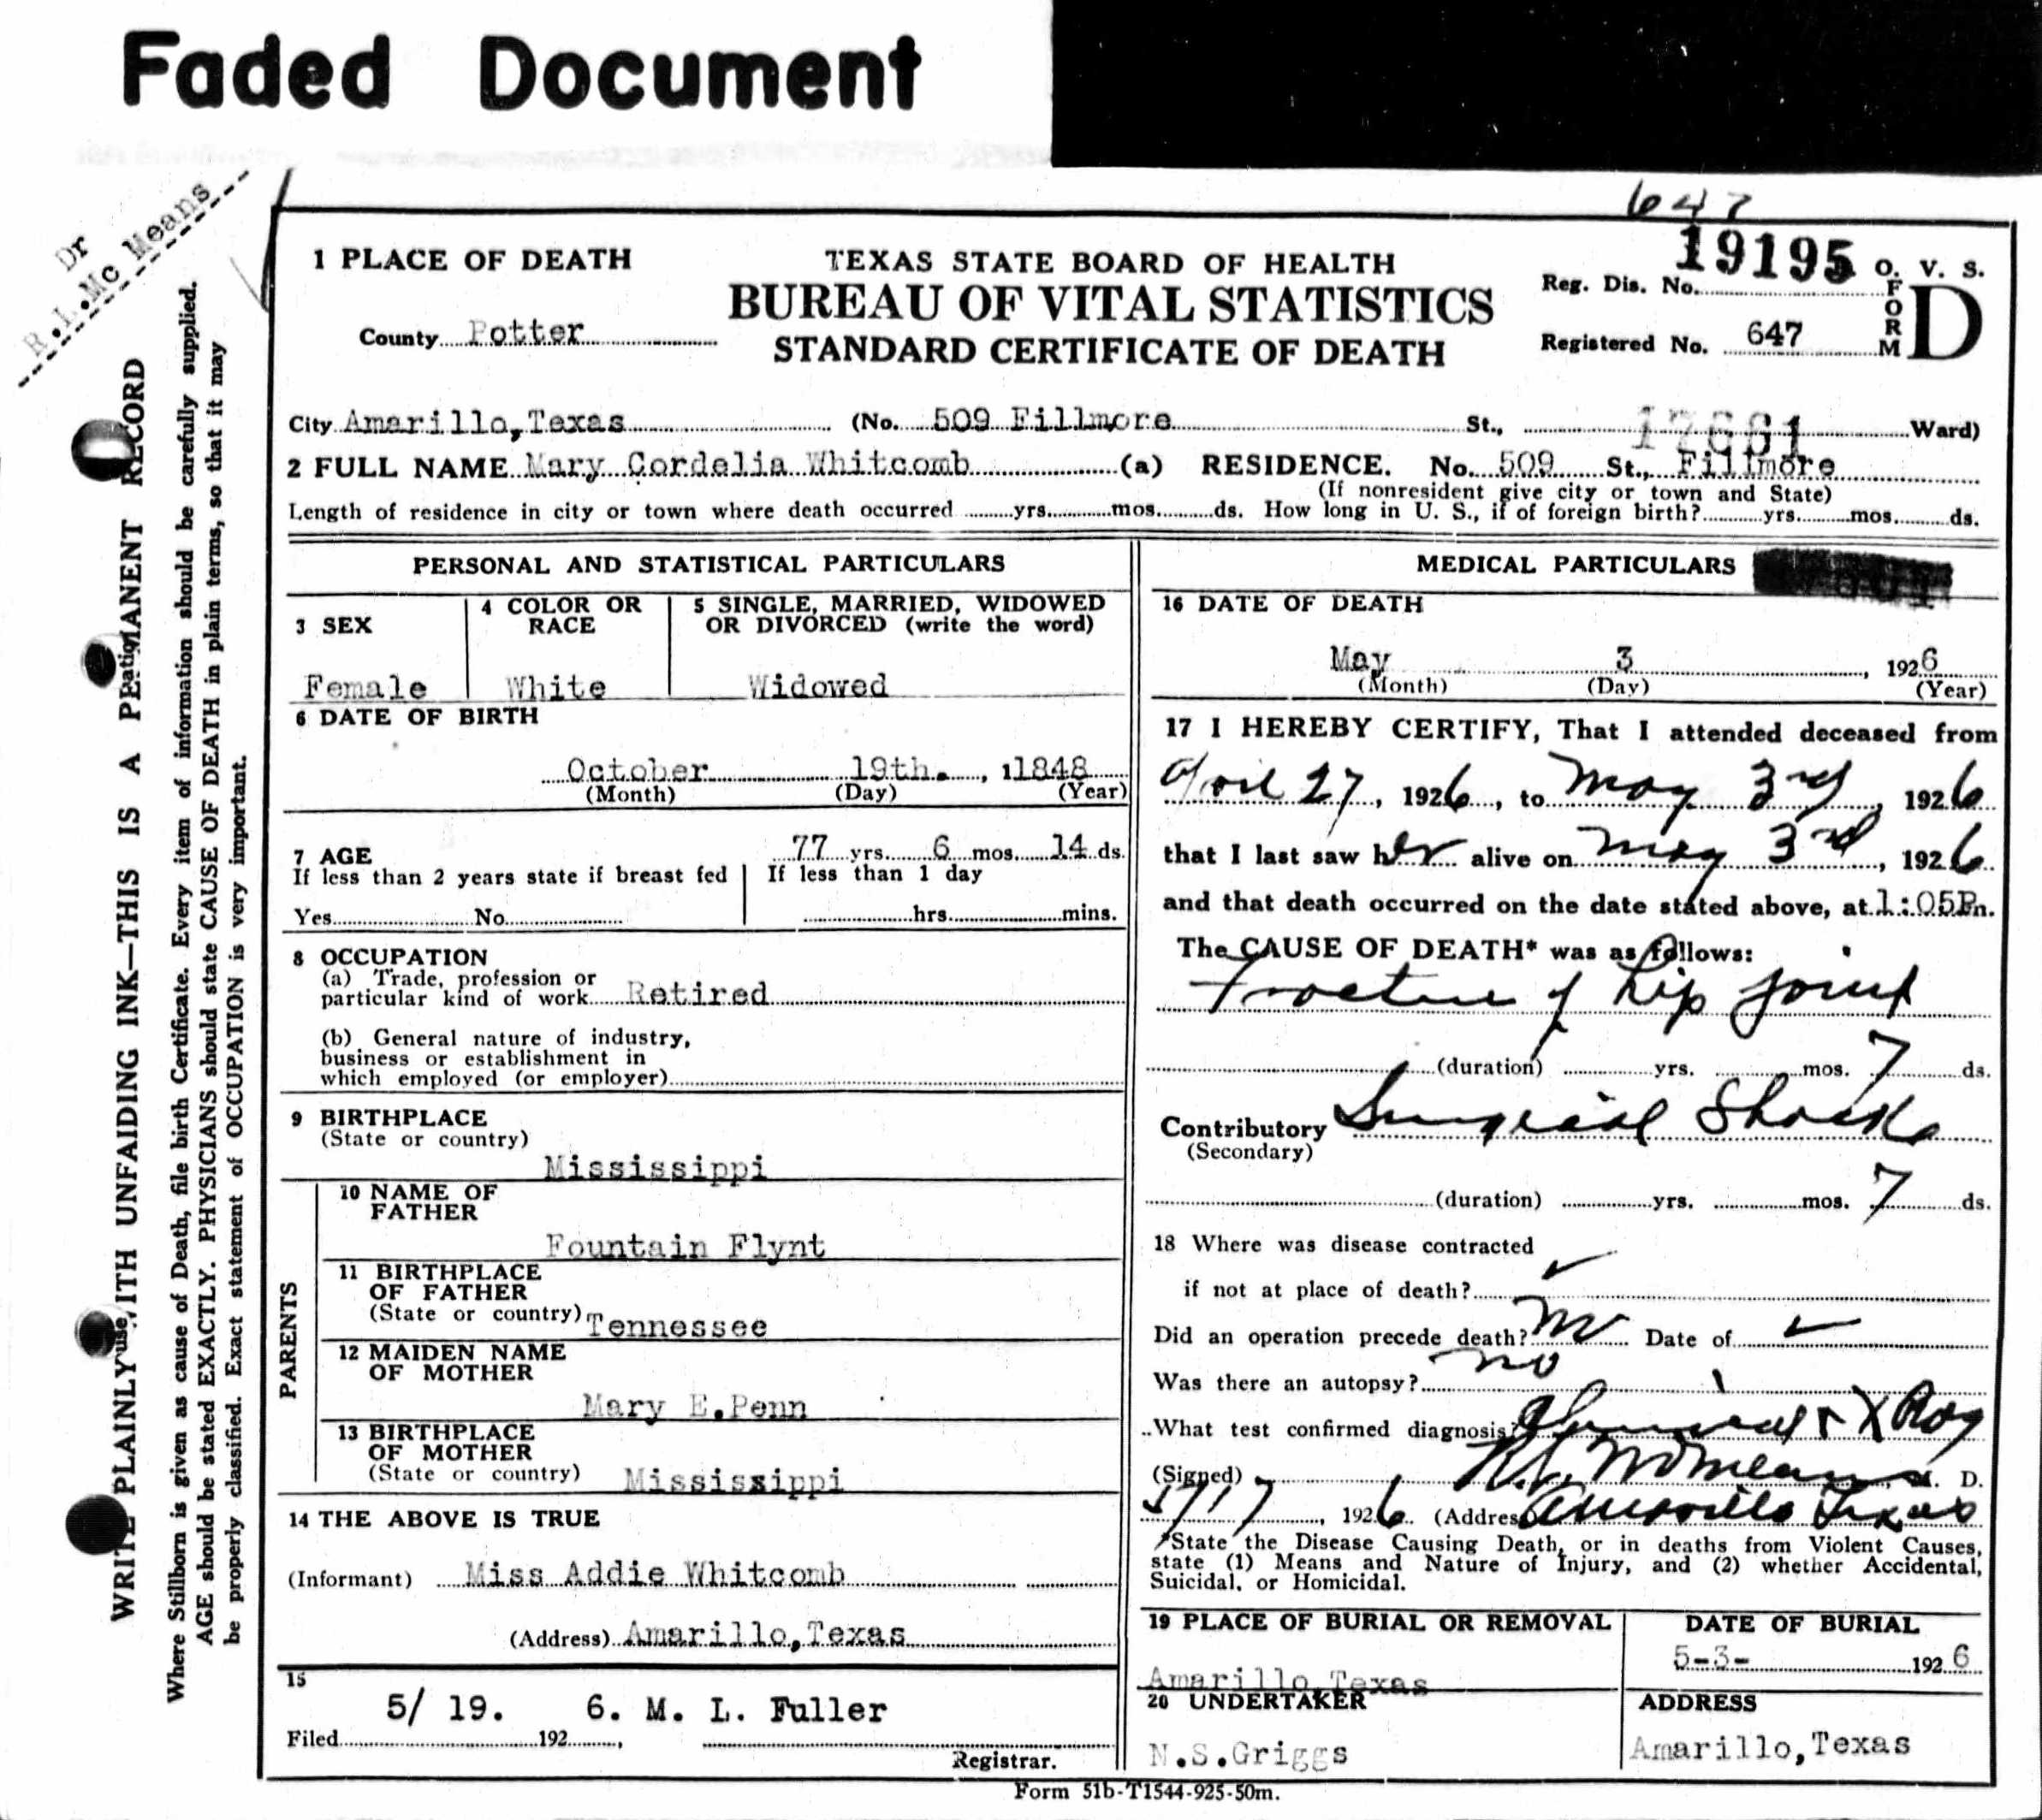 Faded Document
Dr
R.L.Mc Means
647
1 PLACE OF DEATH
County Potter
TEXAS STATE BOARD OF HEALTH
BUREAU OF VITAL STATISTICS
STANDARD CERTIFICATE OF DEATH
19195
Reg. Dis. No.
Registered No. 647
O. V. S.
FORM D
City Amarillo,Texas (No. 509 Fillmore St., Ward)
2 FULL NAME Mary Cordelia Whitcomb (a) RESIDENCE. No. 509 St., Fillmore
(If nonresident give city or town and State)
Length of residence in city or town where death occurred yrs. mos. ds. How long in U. S., if of foreign birth? yrs. mos. ds.
PERSONAL AND STATISTICAL PARTICULARS
3 SEX
Female
4 COLOR OR RACE
White
5 SINGLE, MARRIED, WIDOWED
OR DIVORCED (write the word)
Widowed
6 DATE OF BIRTH
October 19th. , 11848
(Month) (Day) (Year)
7 AGE 77 yrs. 6 mos. 14 ds.
If less than 2 years state if breast fed
Yes No
If less than 1 day
hrs. mins.
8 OCCUPATION
(a) Trade, profession or
particular kind of work Retired
(b) General nature of industry,
business or establishment in
which employed (or employer)
9 BIRTHPLACE
(State or country)
Mississippi
PARENTS
10 NAME OF
FATHER
Fountain Flynt
11 BIRTHPLACE
OF FATHER
(State or country) Tennessee
12 MAIDEN NAME
OF MOTHER
Mary E.Penn
13 BIRTHPLACE
OF MOTHER
(State or country) Mississippi
14 THE ABOVE IS TRUE
(Informant) Miss Addie Whitcomb
(Address) Amarillo,Texas
15
5/ 19. 6. M. L. Fuller
Filed 192 ,
Registrar.
MEDICAL PARTICULARS
16 DATE OF DEATH
May 3 , 1926
(Month) (Day) (Year)
17 I HEREBY CERTIFY, That I attended deceased from
April 27, 1926, to May 3rd, 1926
that I last saw her alive on May 3rd, 1926
and that death occurred on the date stated above, at 1:05P m.
The CAUSE OF DEATH* was as follows:
Fracture of hip joint
(duration) yrs. mos. 7 ds.
Contributory Surgical Shock
(Secondary)
(duration) yrs. mos. 7 ds.
18 Where was disease contracted
if not at place of death? ✓
Did an operation precede death? No Date of ✓
Was there an autopsy? no
What test confirmed diagnosis? X Ray
(Signed) R.L. McMeans M. D.
5/17, 1926 (Address) Amarillo Texas
*State the Disease Causing Death, or in deaths from Violent Causes,
state (1) Means and Nature of Injury, and (2) whether Accidental,
Suicidal, or Homicidal.
19 PLACE OF BURIAL OR REMOVAL
Amarillo,Texas
DATE OF BURIAL
5-3- 1926
20 UNDERTAKER
N.S.Griggs
ADDRESS
Amarillo,Texas
Form 51b-T1544-925-50m.
WRITE PLAINLY WITH UNFAIDING INK—THIS IS A PERMANENT RECORD
Where Stillborn is given as cause of Death, file birth Certificate. Every item of information should be carefully supplied.
AGE should be stated EXACTLY. PHYSICIANS should state CAUSE OF DEATH in plain terms, so that it may
be properly classified. Exact statement of OCCUPATION is very important.